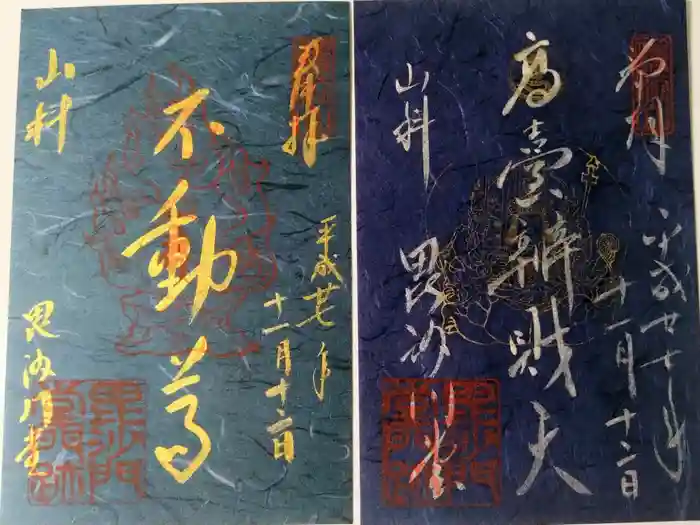 奉拝
平成廿七年
十一月十二日
不動尊
山科
毘沙門堂
奉拝
平成廿七年
十一月十二日
高臺辨財天
山科
毘沙門堂